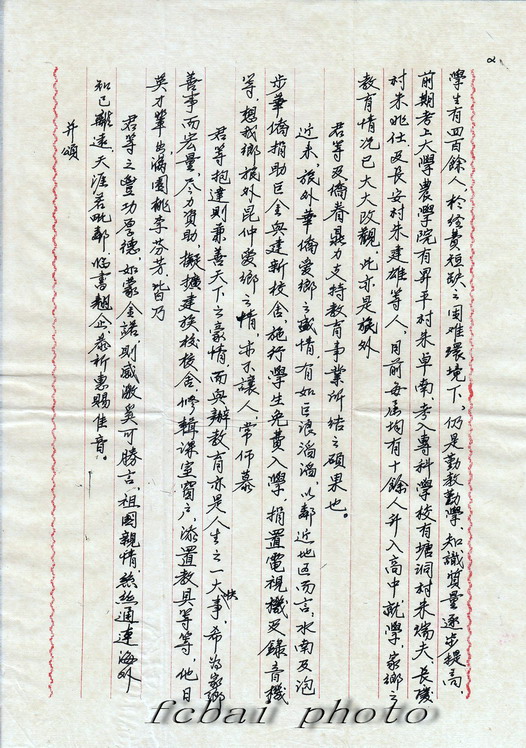 2
學生有四百餘人於經費短缺之困難環境下,仍是勤教勤學,知識質量逐步提高
前期考上大學農學院有昇平村朱卓南考入專科學校有塘洞村朱瑞夫、長慶
村朱眺仕及長安村朱建雄等人,目前每屆均有十餘人升入高中就學,家鄉之
教育情況已大大改觀,此亦是旅外
君等及僑眷鼎力支持教育事業所結之碩果也。
近來,旅外華僑愛鄉之盛情,有如巨浪滔滔,以鄰近地區而言,水南及泡
步華僑捐助巨金興建新校舍,施行學生免費入學,捐置電視機及錄音機
等,想我鄉旅外昆仲愛鄉之情,亦不讓人,常仰慕
君等抱達則兼善天下之豪情,而興辦教育亦是人生之一大快事,希為家鄉
善事而宏量,尽力資助,擬擴建族校校舍修輯課室窗户,添置教具等等,他日
英才輩出滿園桃李芬芳,皆乃
君等之豐功厚德,如蒙金諾,則感激奚可勝言,祖國親情,絲絲通連海外
知己雖遠天涯若毗鄰,臨書翹企,恭祈惠賜佳音。
并頌
fcbai photo